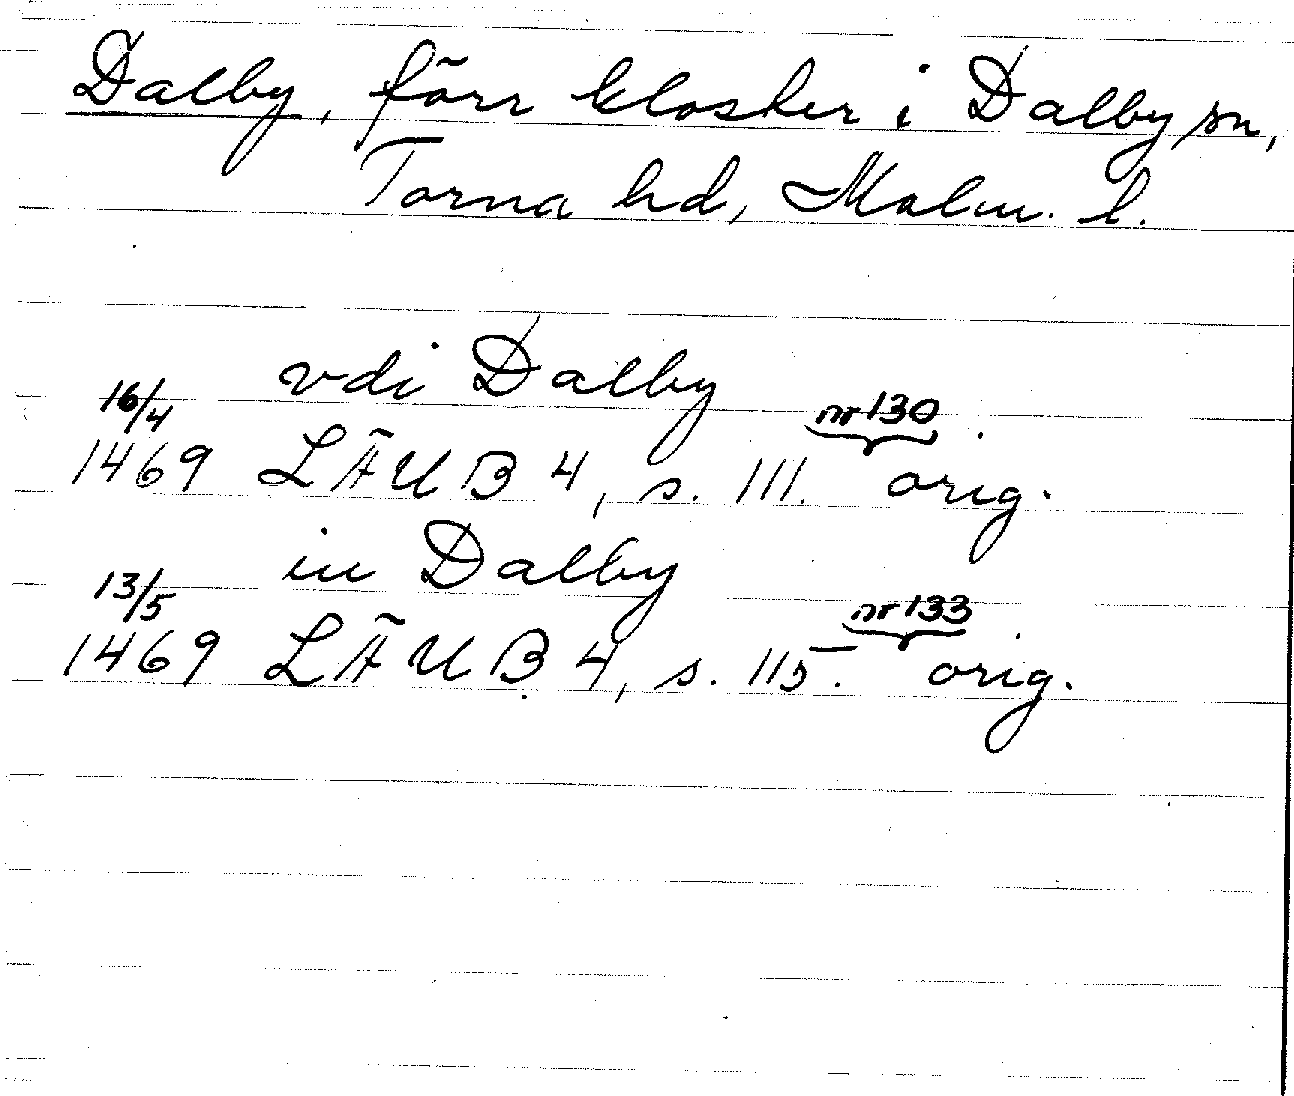 Dalby, förr kloster i Dalby sn,
Torna hd, Malm. l.
vdi Dalby
16/4 nr 130
1469 LÄUB 4, s. 111. orig.
in Dalby
13/5 nr 133
1469 LÄUB 4, s. 115. orig.